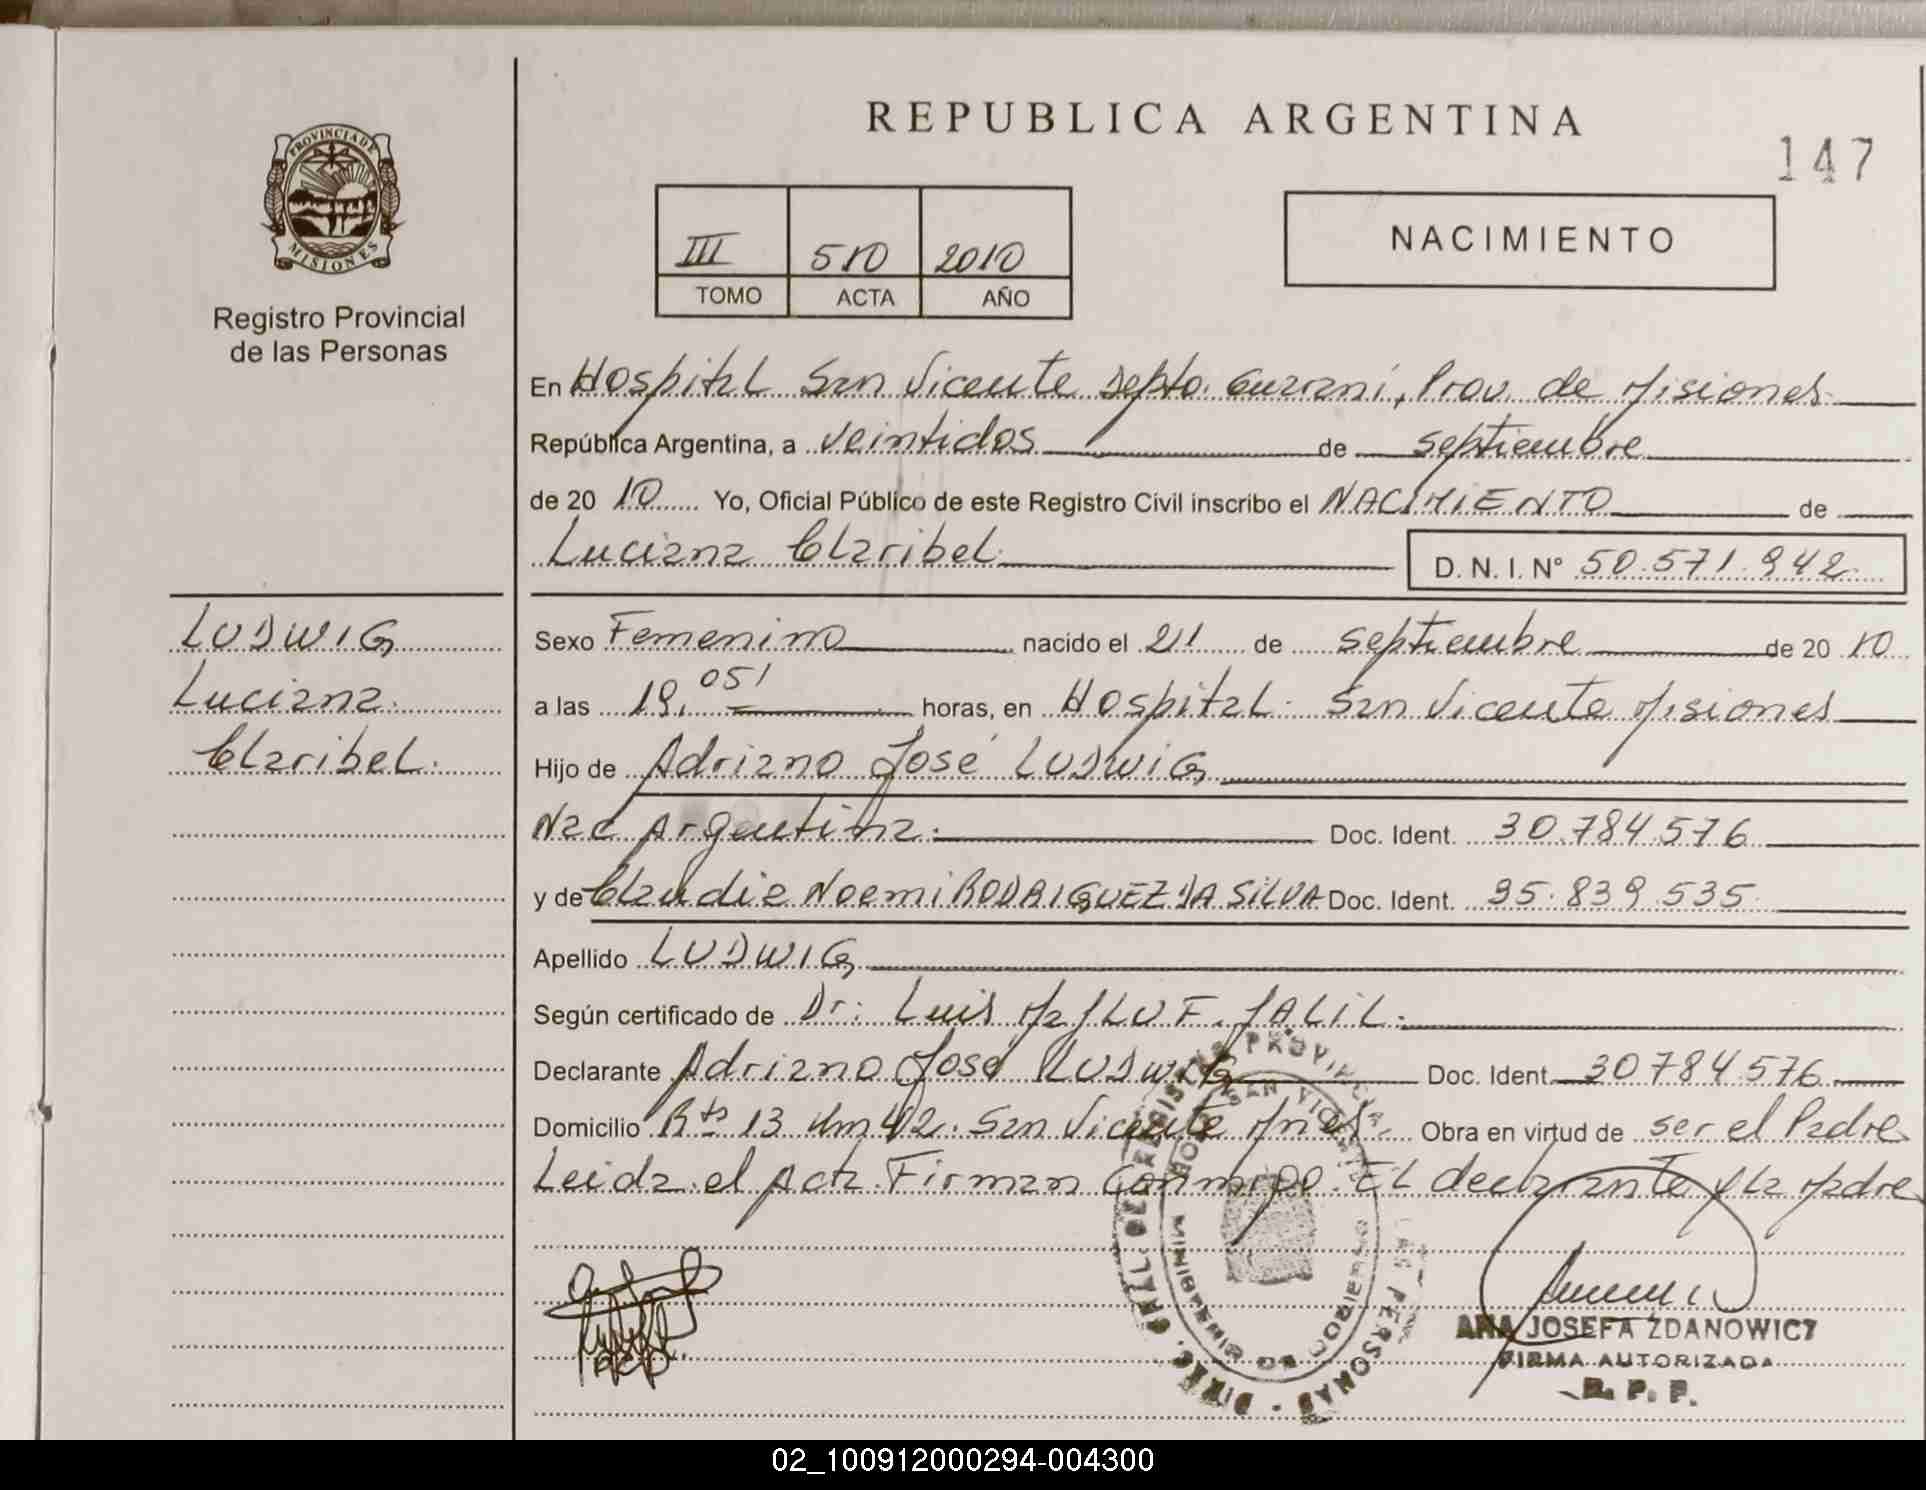 REPUBLICA ARGENTINA
147
PROVINCIA DE
MISIONES
Registro Provincial
de las Personas
III 510 2010
TOMO ACTA AÑO
NACIMIENTO
En Hospital San Vicente Depto. Guarani, Prov. de Misiones
República Argentina, a veintidos de septiembre
de 20 10 Yo, Oficial Público de este Registro Civil inscribo el NACIMIENTO de
Luciana Claribel
D. N. I. Nº 50.571.942
LUDWIG
Luciana
Claribel.
Sexo Femenino nacido el 21 de septiembre de 20 10
a las 19. 05' horas, en Hospital San Vicente Misiones
Hijo de Adriano José LUDWIG
Nac Argentina. Doc. Ident. 30.784.576
y de Claudia Noemi RODRIGUEZ DA SILVA Doc. Ident. 35.839.535
Apellido LUDWIG
Según certificado de Dr: Luis F. JALIL.
Declarante Adriano José LUDWIG Doc. Ident. 30784576
Domicilio Rta 13 Km 42. San Vicente Mnes. Obra en virtud de ser el Padre
Leida el Acta Firman Conmigo El declarante y la Madre
DIREC. GRAL. DE REGISTRO PROVINCIAL DE LAS PERSONAS
MINISTERIO DE GOBIERNO
HOSP. SAN VICENTE
ANA JOSEFA ZDANOWICZ
FIRMA AUTORIZADA
R. P. P.
02_100912000294-004300